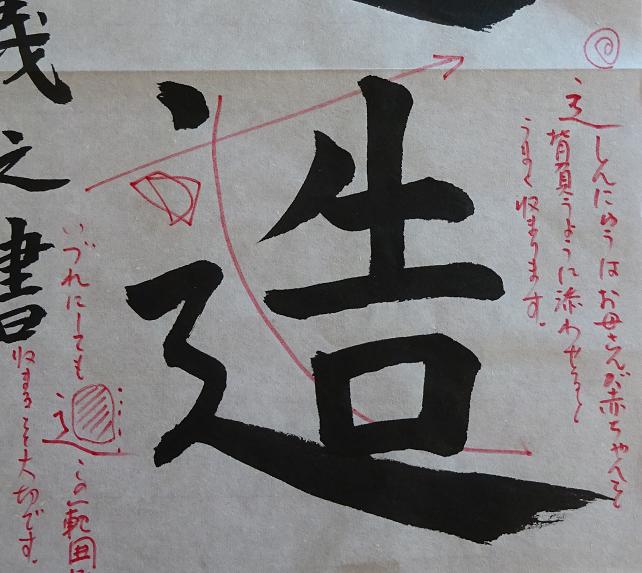 辶しんにゅうはお母さんが赤ちゃんを
背負うように添わせると
うまく収まります。
造
いづれにしても
辶この範囲に
収まることも大切です。
義之書